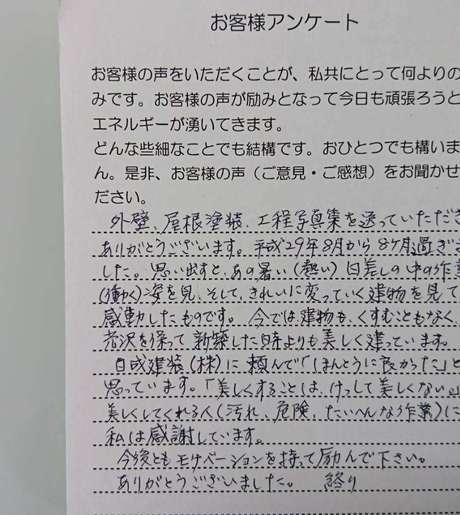 お客様アンケート
お客様の声をいただくことが、私共にとって何よりの
みです。お客様の声が励みとなって今日も頑張ろうと
エネルギーが湧いてきます。
どんな些細なことでも結構です。おひとつでも構いま
ん。是非、お客様の声（ご意見・ご感想）をお聞かせ
ださい。
外壁、屋根塗装、工程写真集を送っていただき
ありがとうございます。平成29年8月から8ヶ月過ぎま
した。思い出すと、あの暑い(熱い)日差しの中の作業
(働く)姿を見、そして、きれいに変っていく建物を見て
感動したものです。今では建物も、くすむこともなく、
光沢を保って新築した時よりも美しく建っています。
日成建装(株)に頼んで「ほんとうに良かった」と
思っています。「美しくすることは、けっして美しくない。」
美しくしてくれる人(汚れ、危険、たいへんな作業)に
私は感謝しています。
今後ともモチベーションを持って励んで下さい。
ありがとうございました。 終り